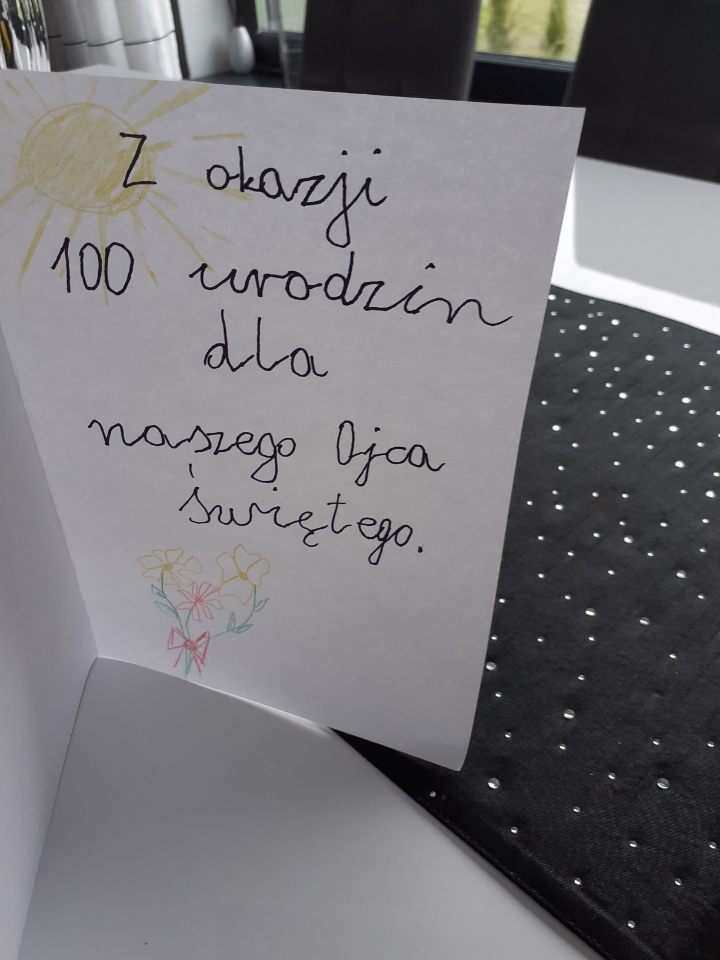 Z okazji
100 urodzin
dla
naszego Ojca
świętego.